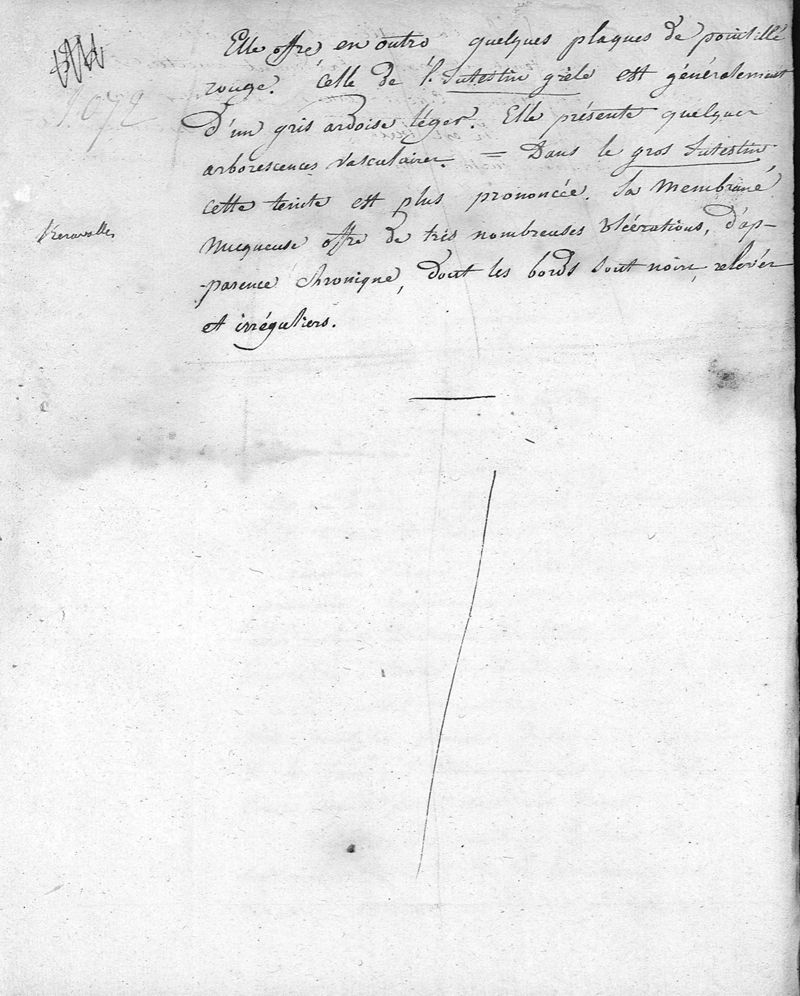 1072
Elle offre en outre quelques plaques de pointillé
rouge. Celle de l'Intestin grèle est généralement
d'un gris ardoise léger. Elle présente quelques
arborescences vasculaires. = Dans le gros Intestin,
cette teinte est plus prononcée. La Membrane
Muqueuse offre de très nombreuses Ulcérations, d'ap-
-parence chronique, dont les bords sont noirs, relevés
et irréguliers.